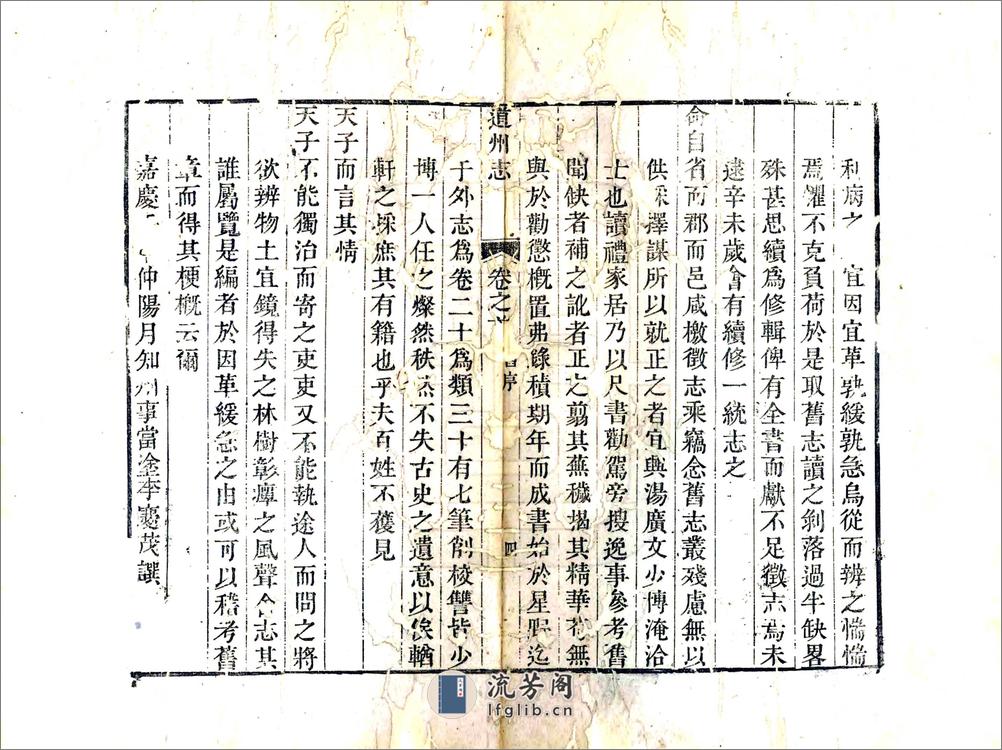 利病之 宜因宜革孰緩孰急烏從而辨之惴惴
焉懼不克負荷於是取舊志讀之剝落過半缺畧
殊甚思續為修輯俾有全書而獻不足徵志焉未
逮辛未歲會有續修一統志之
命自省而郡而邑咸檄徵志乘竊念舊志叢殘慮無以
供採擇謀所以就正之者宜興湯廣文少傳淹洽
士也讀禮家居乃以尺書勸駕旁搜逸事參考舊
聞缺者補之訛者正之翦其蕪穢掲其精華苟無
與於勸懲概置弗錄積期年而成書始於星野迄
道州志 卷之首 序 四
于外志為卷二十為類三十有七筆削校讐皆少
傳一人任之燦然秩然不失古史之遺意以俟輶
軒之採庶其有籍也乎夫百姓不獲見
天子而言其情
天子不能獨治而寄之吏吏又不能執途人而問之將
欲辨物土宜鏡得失之林樹彰癉之風聲舍志其
誰屬覽是編者於因革緩急之由或可以稽考舊
章而得其梗概云爾
嘉慶 仲陽月知州事當塗李 茂譔
流芳阁
lfglib.cn